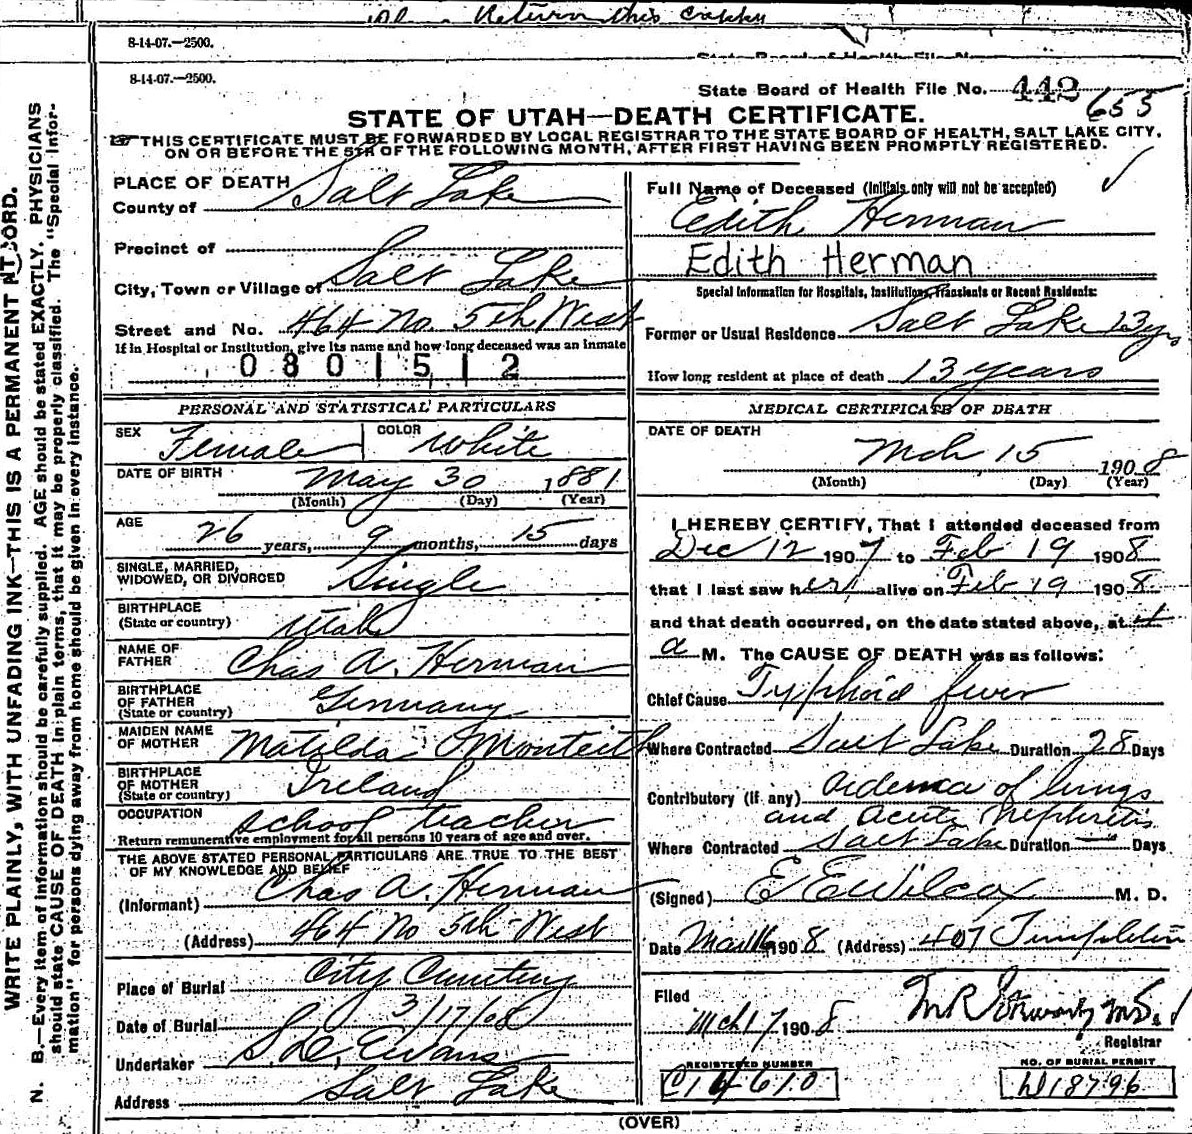 Return this
8-14-07.—2500.
State Board of Health File No.
8-14-07.—2500.
State Board of Health File No. 442 655
STATE OF UTAH—DEATH CERTIFICATE.
☞ THIS CERTIFICATE MUST BE FORWARDED BY LOCAL REGISTRAR TO THE STATE BOARD OF HEALTH, SALT LAKE CITY,
ON OR BEFORE THE 5TH OF THE FOLLOWING MONTH, AFTER FIRST HAVING BEEN PROMPTLY REGISTERED.
WRITE PLAINLY, WITH UNFADING INK—THIS IS A PERMANENT
N. B.—Every item of information should be carefully supplied. AGE should be stated EXACTLY. PHYSICIANS
should state CAUSE OF DEATH in plain terms, that it may be properly classified. The "Special Infor-
mation" for persons dying away from home should be given in every instance.
PLACE OF DEATH
County of Salt Lake
Precinct of
City, Town or Village of Salt Lake
Street and No. 464 No. 5th West
If in Hospital or Institution, give its name and how long deceased was an inmate
0801512
PERSONAL AND STATISTICAL PARTICULARS
SEX Female COLOR White
DATE OF BIRTH May 30 1881
(Month) (Day) (Year)
AGE 26 years, 9 months, 15 days
SINGLE, MARRIED,
WIDOWED, OR DIVORCED Single
BIRTHPLACE
(State or country) Utah
NAME OF
FATHER Chas A. Herman
BIRTHPLACE
OF FATHER
(State or country) Germany
MAIDEN NAME
OF MOTHER Matilda Monteith
BIRTHPLACE
OF MOTHER
(State or country) Ireland
OCCUPATION school teacher
Return remunerative employment for all persons 10 years of age and over.
THE ABOVE STATED PERSONAL PARTICULARS ARE TRUE TO THE BEST
OF MY KNOWLEDGE AND BELIEF
(Informant) Chas A. Herman
(Address) 464 No 5th West
Place of Burial City Cemetery
Date of Burial 3/17/08
Undertaker Evans
Address Salt Lake
Full Name of Deceased (Initials only will not be accepted)
Edith Herman
Edith Herman
Special Information for Hospitals, Institutions, Transients or Recent Residents:
Former or Usual Residence Salt Lake 13 yrs
How long resident at place of death 13 years
MEDICAL CERTIFICATE OF DEATH
DATE OF DEATH
Mch 15 1908
(Month) (Day) (Year)
I HEREBY CERTIFY, That I attended deceased from
Dec 12 1907 to Feb 19 1908
that I last saw her alive on Feb 19 1908
and that death occurred, on the date stated above, at 4
a M. The CAUSE OF DEATH was as follows:
Chief Cause Typhoid fever
Where Contracted Salt Lake Duration 28 Days
Contributory (if any) oedema of lungs
and acute Nephritis
Where Contracted Salt Lake Duration — Days
(Signed) E E Wilcox M. D.
Date Mar 16 1908 (Address) 407 Templeton
Filed
Mch 17 1908
Registrar
REGISTERED NUMBER
C14610
NO. OF BURIAL PERMIT
D18796
(OVER)